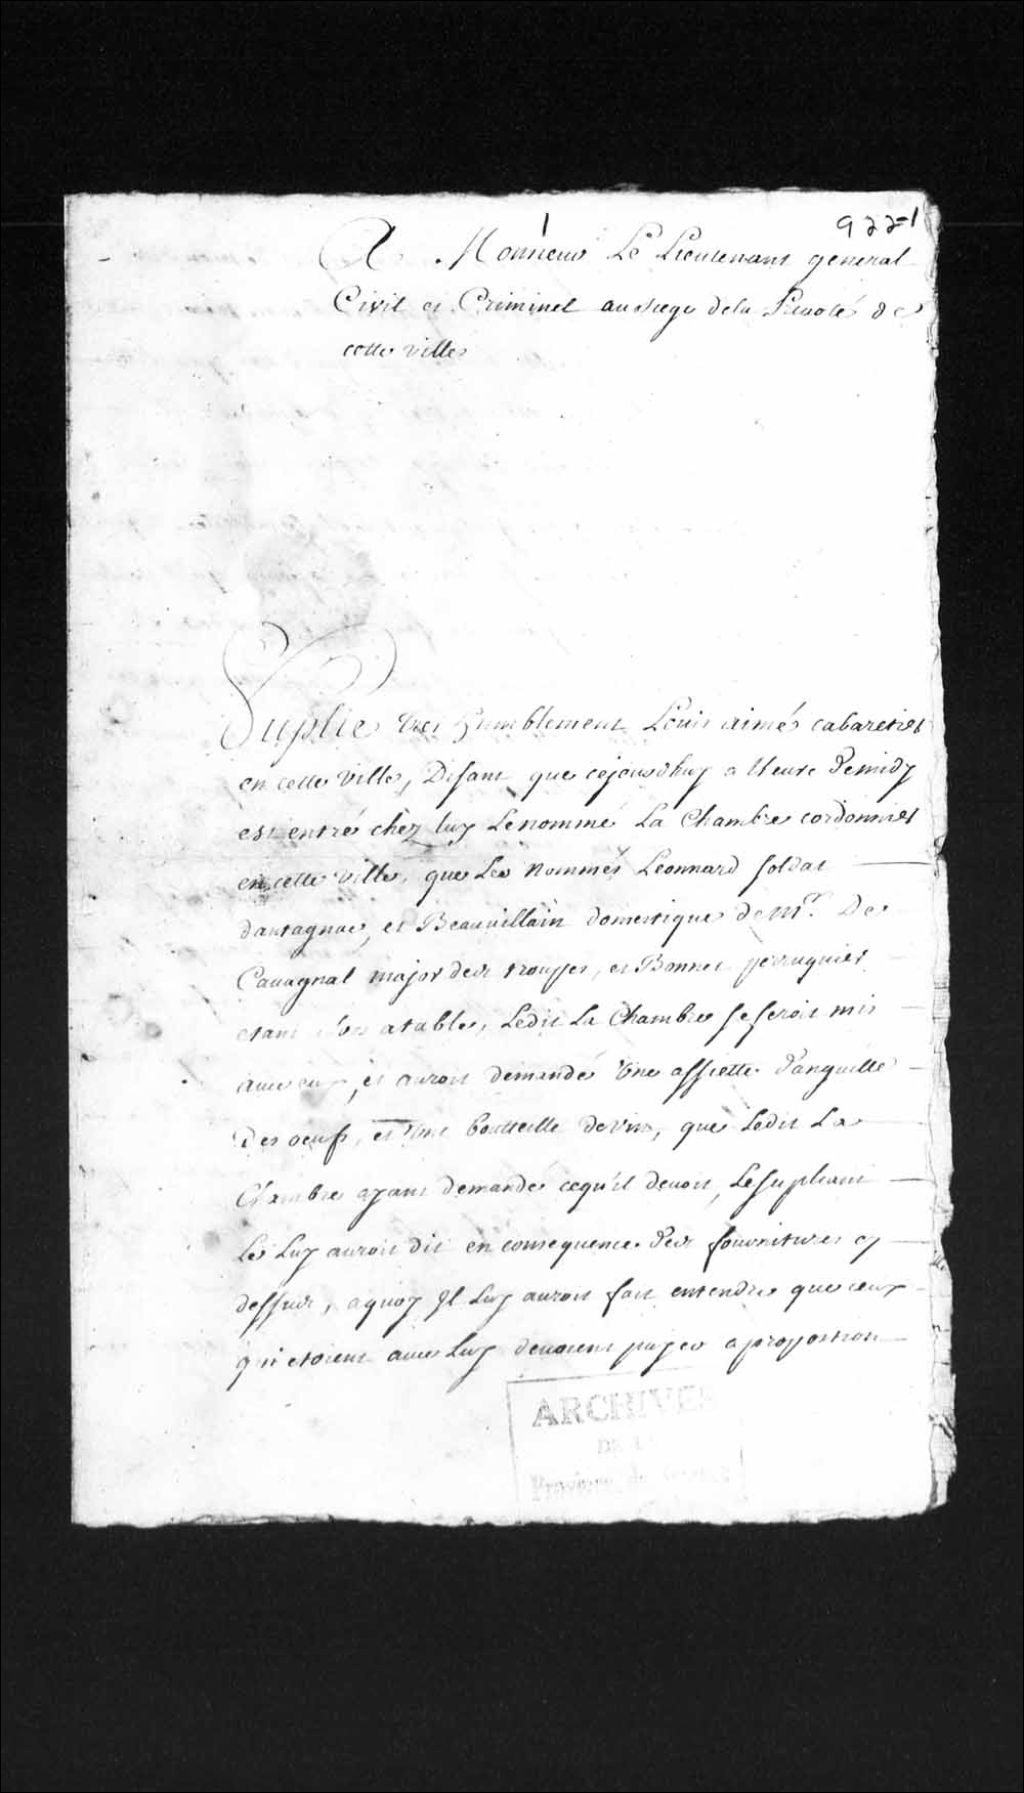 1
922-1
A Monsieur Le Lieutenant general
Civil et Criminel au siege de la Prevoté de
cette ville
Suplie tres humblement Louis aimé cabaretier
en cette ville, Disant que cejourdhuy a lheure de midy
est entré chez luy Le nommé La Chambre cordonnier
en cette ville, que Les nommés Leonnard soldat
dartagnac, et Beauvillain domestique de Mr. De
Cauagnal major des trouppes, et Bonnet perruquier
etant a table, Ledit La Chambre se seroit mis
avec eux, et auroit demandé Une assiette d'anguille
Des oeufs, et Une bouteille de vin, que Ledit La
Chambre ayant demandé cequ'il devoit, Le supliant
Le Luy auroit dit en consequence des fournitures cy
dessus, a quoy Il Luy auroit fait entendre que ceux
qui etoient avec Luy devoient payer a proportion
ARCHIVES
DE LA
Province de Quebec